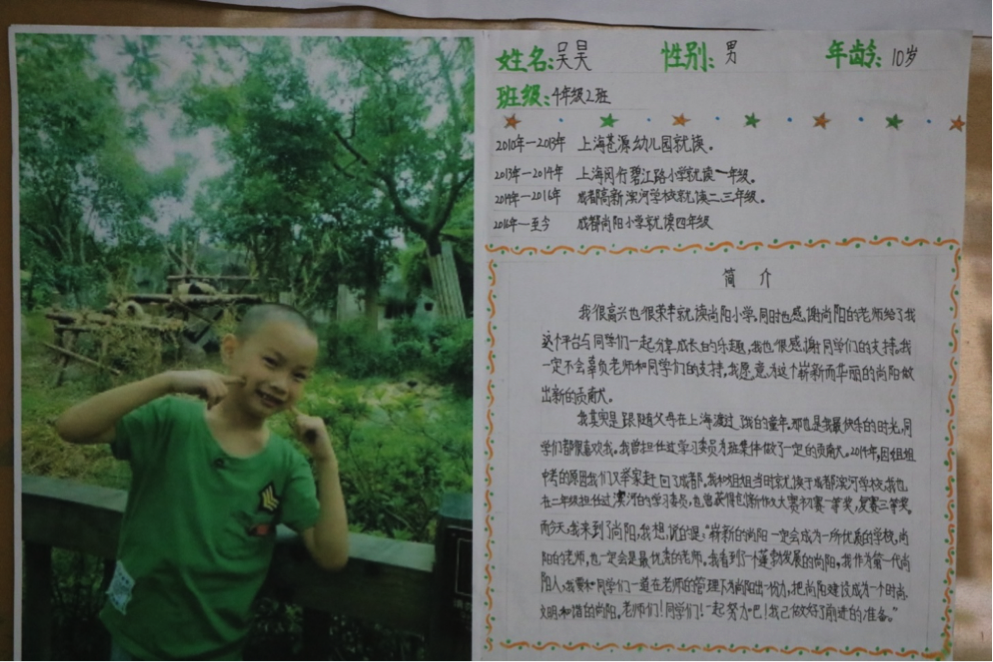 姓名:吴昊 性别:男 年龄:10岁
班级:4年级2班
2010年—2013年 上海苍源幼儿园就读。
2013年—2014年 上海闵行碧江路小学就读一年级。
2014年—2016年 成都高新滨河学校就读二、三年级。
2016年—至今 成都尚阳小学就读四年级
简 介
我很高兴也很荣幸就读尚阳小学,同时也感谢尚阳的老师给了我
这个平台与同学们一起分享成长的乐趣,我也很感谢同学们的支持,我
一定不会辜负老师和同学们的支持,我愿意为这个崭新而华丽的尚阳做
出新的贡献。
我其实是跟随父母在上海渡过了我的童年。那也是我最快乐的时光,同
学们都很喜欢我。我曾担任过学习委员为班集体做了一定的贡献。2014年,因姐姐
中考的原因我们又举家赶回了成都,我和姐姐当时就读于成都滨河学校,我也
在二年级担任过滨河的学习委员,也曾获得创新作文大赛初赛一等奖,复赛三等奖。
而今天,我来到了尚阳,我想说的是:“崭新的尚阳一定会成为一所优质的学校,尚
阳的老师,也一定会是最优秀的老师。我看到了一个蓬勃发展的尚阳。我作为第一代尚
阳人,我要和同学们一道在老师的管理下为尚阳出一份力,把尚阳建设成为一个时尚
文明和谐的尚阳。老师们!同学们!一起努力吧!我已做好了前进的准备。”